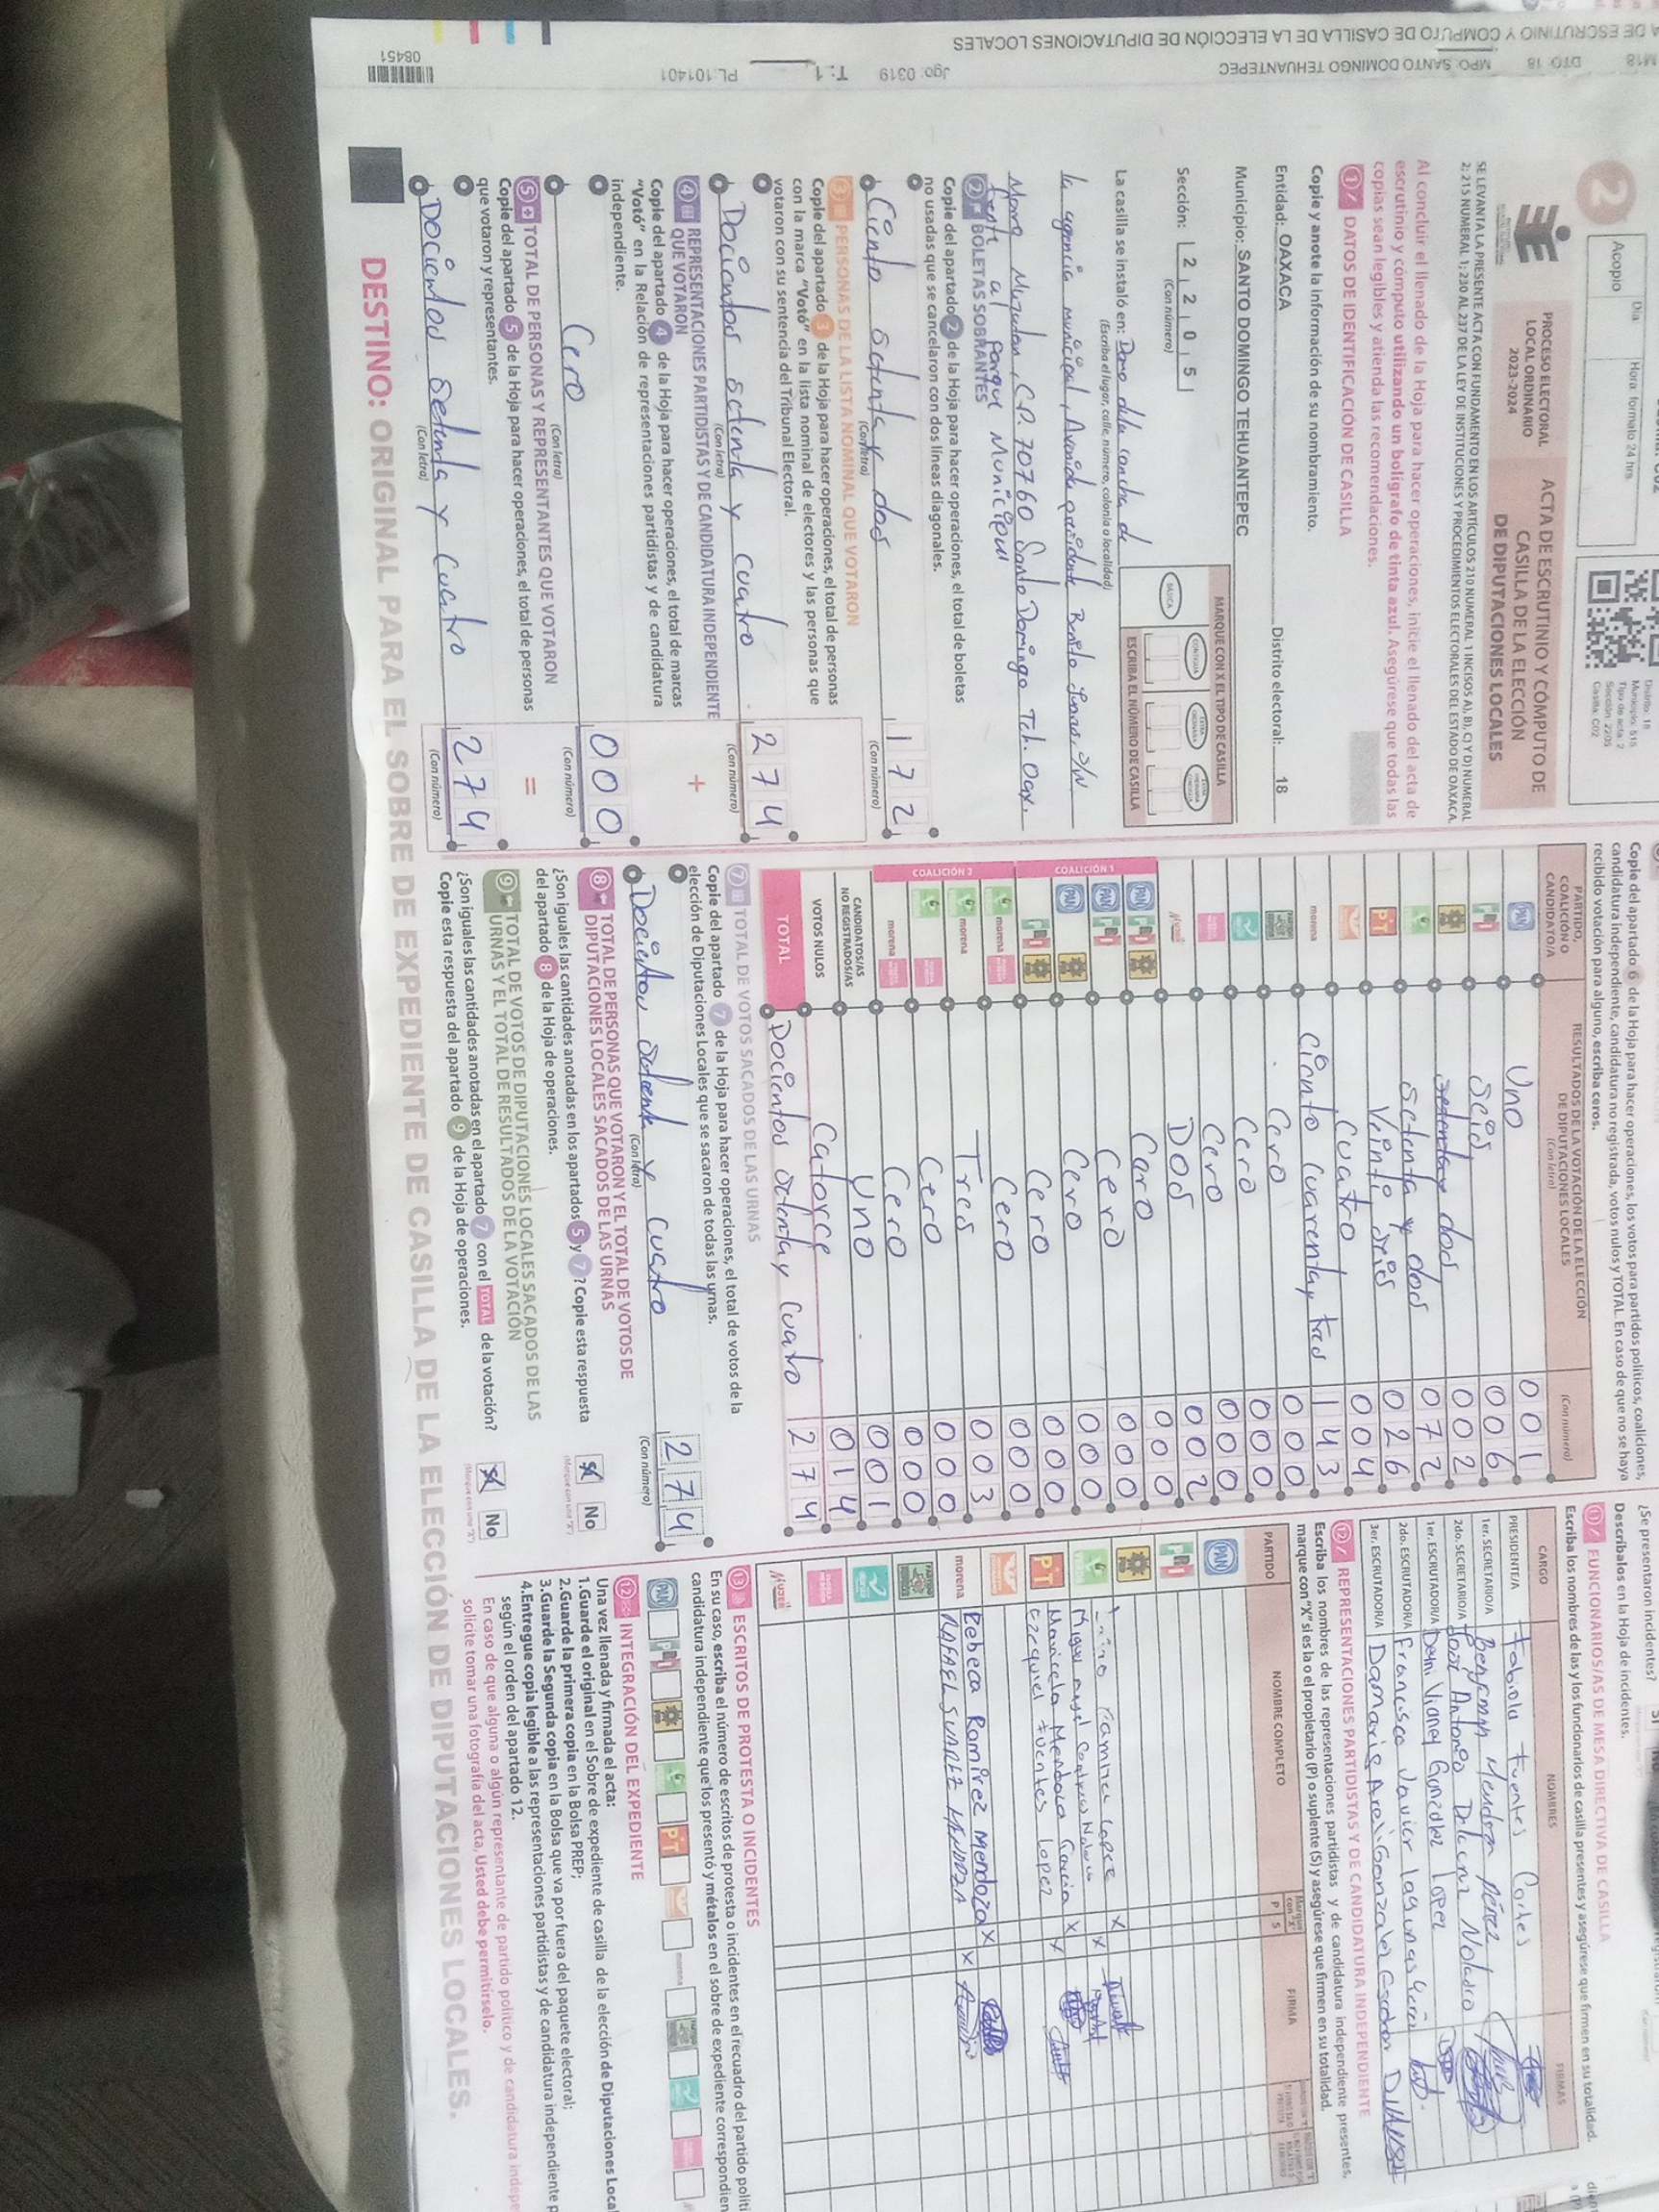 A DE ESCRUTINIO Y CÓMPUTO DE CASILLA DE LA ELECCIÓN DE DIPUTACIONES LOCALES
M18 DTO 18 MPO: SANTO DOMINGO TEHUANTEPEC Jgo: 0319 T: 1 PL:101401
08451
2
Día
Hora formato 24 hrs
Acopio
Distrito: 18
Municipio: 515
Tipo de acta: 2
Sección: 2205
Casilla: C02
PROCESO ELECTORAL
LOCAL ORDINARIO
2023-2024
ACTA DE ESCRUTINIO Y CÓMPUTO DE
CASILLA DE LA ELECCIÓN
DE DIPUTACIONES LOCALES
SE LEVANTA LA PRESENTE ACTA CON FUNDAMENTO EN LOS ARTÍCULOS 210 NUMERAL 1 INCISOS A), B), C) Y D) NUMERAL
2; 215 NUMERAL 1; 230 AL 237 DE LA LEY DE INSTITUCIONES Y PROCEDIMIENTOS ELECTORALES DEL ESTADO DE OAXACA.
Al concluir el llenado de la Hoja para hacer operaciones, inicie el llenado del acta de
escrutinio y cómputo utilizando un bolígrafo de tinta azul. Asegúrese que todas las
copias sean legibles y atienda las recomendaciones.
1 DATOS DE IDENTIFICACIÓN DE CASILLA
Copie y anote la información de su nombramiento.
Entidad: OAXACA Distrito electoral: 18
Municipio: SANTO DOMINGO TEHUANTEPEC
Sección: 2 2 0 5
(Con número)
MARQUE CON X EL TIPO DE CASILLA
BÁSICA
CONTIGUA
ESCRIBA EL NÚMERO DE CASILLA
La casilla se instaló en: Domo de la cancha de
(Escriba el lugar, calle, número, colonia o localidad)
la agencia municipal, Avenida presidente Benito Juarez, S/N
Morro Mazatan, C.P. 70760 Santo Domingo Teh. Oax.
frente al parque Municipal
2 BOLETAS SOBRANTES
Copie del apartado 2 de la Hoja para hacer operaciones, el total de boletas
no usadas que se cancelaron con dos líneas diagonales.
Ciento setenta y dos 1 7 2
(Con letra) (Con número)
3 PERSONAS DE LA LISTA NOMINAL QUE VOTARON
Copie del apartado 3 de la Hoja para hacer operaciones, el total de personas
con la marca "Votó" en la lista nominal de electores y las personas que
votaron con su sentencia del Tribunal Electoral.
Docientos setenta y cuatro 2 7 4
(Con letra) (Con número)
4 REPRESENTACIONES PARTIDISTAS Y DE CANDIDATURA INDEPENDIENTE
QUE VOTARON
+
Copie del apartado 4 de la Hoja para hacer operaciones, el total de marcas
"Votó" en la Relación de representaciones partidistas y de candidatura
independiente.
Cero 0 0 0
(Con letra) (Con número)
5 TOTAL DE PERSONAS Y REPRESENTANTES QUE VOTARON
=
Copie del apartado 5 de la Hoja para hacer operaciones, el total de personas
que votaron y representantes.
Docientos setenta y cuatro 2 7 4
(Con letra) (Con número)
Copie del apartado 6 de la Hoja para hacer operaciones, los votos para partidos políticos, coaliciones,
candidatura independiente, candidatura no registrada, votos nulos y TOTAL. En caso de que no se haya
recibido votación para alguno, escriba ceros.
PARTIDO,
COALICIÓN O
CANDIDATO/A
RESULTADOS DE LA VOTACIÓN DE LA ELECCIÓN
DE DIPUTACIONES LOCALES
(Con letra)
(Con número)
PAN Uno 0 0 1
PRI Seis 0 0 6
setenta y dos 0 0 2
setenta y dos 0 7 2
PT Veinte seis 0 2 6
Cuatro 0 0 4
morena Ciento cuarenta y tres 1 4 3
Cero 0 0 0
Cero 0 0 0
Cero 0 0 0
Dos 0 0 2
COALICIÓN 1
PAN PRI Cero 0 0 0
PAN PRI Cero 0 0 0
PAN Cero 0 0 0
PRI Cero 0 0 0
COALICIÓN 2
morena Cero 0 0 0
morena Tres 0 0 3
Cero 0 0 0
morena Cero 0 0 0
CANDIDATOS/AS
NO REGISTRADOS/AS Uno 0 0 1
VOTOS NULOS Catorce 0 1 4
TOTAL Docientos setenta y cuatro 2 7 4
7 TOTAL DE VOTOS SACADOS DE LAS URNAS
Copie del apartado 7 de la Hoja para hacer operaciones, el total de votos de la
elección de Diputaciones Locales que se sacaron de todas las urnas.
Docientos setenta y cuatro 2 7 4
(Con letra) (Con número)
8 TOTAL DE PERSONAS QUE VOTARON Y EL TOTAL DE VOTOS DE
DIPUTACIONES LOCALES SACADOS DE LAS URNAS
¿Son iguales las cantidades anotadas en los apartados 5 y 7? Copie esta respuesta
del apartado 8 de la Hoja de operaciones.
Sí No
(Marque con una "X")
9 TOTAL DE VOTOS DE DIPUTACIONES LOCALES SACADOS DE LAS
URNAS Y EL TOTAL DE RESULTADOS DE LA VOTACIÓN
¿Son iguales las cantidades anotadas en el apartado 7 con el TOTAL de la votación?
Copie esta respuesta del apartado 9 de la Hoja de operaciones.
Sí No
(Marque con una "X")
¿Se presentaron incidentes?
Descríbalos en la Hoja de incidentes.
11 FUNCIONARIOS/AS DE MESA DIRECTIVA DE CASILLA
Escriba los nombres de las y los funcionarios de casilla presentes y asegúrese que firmen en su totalidad.
CARGO NOMBRES FIRMAS
PRESIDENTE/A Fabiola Fuentes Cortes
1er. SECRETARIO/A Benjamin Mendoza Pérez
2do. SECRETARIO/A Jose Antonio
1er. ESCRUTADOR/A Deni Vianey Gonzalez Lopez
2do. ESCRUTADOR/A Francisco Javier
3er. ESCRUTADOR/A Damaris Areli Gonzalez
12 REPRESENTACIONES PARTIDISTAS Y DE CANDIDATURA INDEPENDIENTE
Escriba los nombres de las representaciones partidistas y de candidatura independiente presentes,
marque con "X" si es la o el propietario (P) o suplente (S) y asegúrese que firmen en su totalidad.
PARTIDO NOMBRE COMPLETO P S FIRMA
PAN
PRI
Ramirez Lopez X
Miguel angel X
PT Maricela Mendoza Garcia X
Ezequiel Fuentes Lopez X
morena Rebeca Ramirez Mendoza X
RAFAEL SUAREZ MENDOZA X
13 ESCRITOS DE PROTESTA O INCIDENTES
En su caso, escriba el número de escritos de protesta o incidentes en el recuadro del partido políti
candidatura independiente que los presentó y métalos en el sobre de expediente correspondien
PAN PRI PT morena
12 INTEGRACIÓN DEL EXPEDIENTE
Una vez llenada y firmada el acta:
1.Guarde el original en el Sobre de expediente de casilla de la elección de Diputaciones Loca
2.Guarde la primera copia en la Bolsa PREP;
3.Guarde la Segunda copia en la Bolsa que va por fuera del paquete electoral;
4.Entregue copia legible a las representaciones partidistas y de candidatura independiente p
según el orden del apartado 12.
En caso de que alguna o algún representante de partido político y de candidatura indepe
solicite tomar una fotografía del acta, Usted debe permitírselo.
DESTINO: ORIGINAL PARA EL SOBRE DE EXPEDIENTE DE CASILLA DE LA ELECCIÓN DE DIPUTACIONES LOCALES.